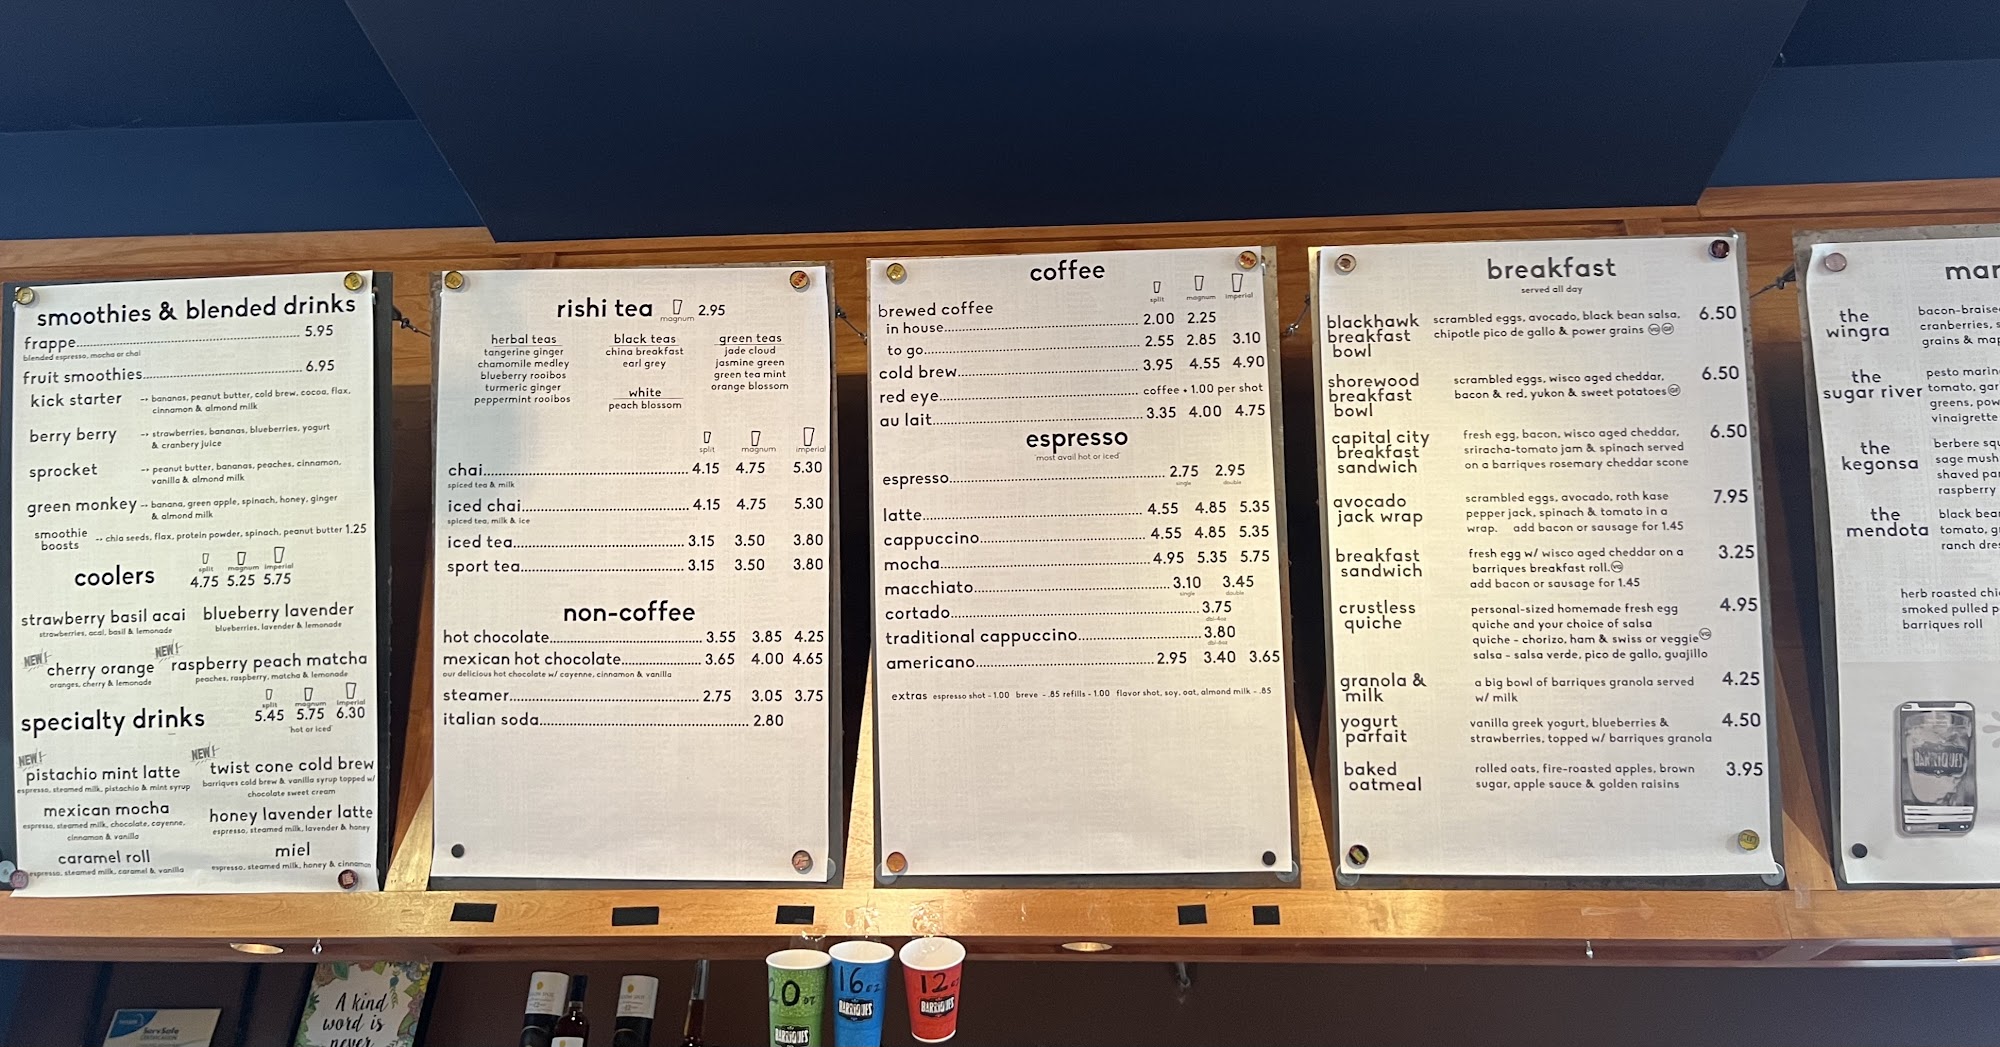 smoothies & blended drinks
frappe 5.95
blended espresso, mocha or chai
fruit smoothies 6.95
kick starter -- bananas, peanut butter, cold brew, cocoa, flax,
cinnamon & almond milk
berry berry -- strawberries, bananas, blueberries, yogurt
& cranbery juice
sprocket -- peanut butter, bananas, peaches, cinnamon,
vanilla & almond milk
green monkey -- banana, green apple, spinach, honey, ginger
& almond milk
smoothie
boosts -- chia seeds, flax, protein powder, spinach, peanut butter 1.25
split magnum imperial
coolers 4.75 5.25 5.75
strawberry basil acai
strawberries, acai, basil & lemonade
blueberry lavender
blueberries, lavender & lemonade
NEW!
cherry orange
oranges, cherry & lemonade
NEW!
raspberry peach matcha
peaches, raspberry, matcha & lemonade
split magnum imperial
specialty drinks 5.45 5.75 6.30
hot or iced
NEW!
pistachio mint latte
espresso, steamed milk, pistachio & mint syrup
NEW!
twist cone cold brew
barriques cold brew & vanilla syrup topped w/
chocolate sweet cream
mexican mocha
espresso, steamed milk, chocolate, cayenne,
cinnamon & vanilla
honey lavender latte
espresso, steamed milk, lavender & honey
caramel roll
espresso, steamed milk, caramel & vanilla
miel
espresso, steamed milk, honey & cinnamon
rishi tea magnum 2.95
herbal teas
tangerine ginger
chamomile medley
blueberry rooibos
turmeric ginger
peppermint rooibos
black teas
china breakfast
earl grey
white
peach blossom
green teas
jade cloud
jasmine green
green tea mint
orange blossom
split magnum imperial
chai 4.15 4.75 5.30
spiced tea & milk
iced chai 4.15 4.75 5.30
spiced tea, milk & ice
iced tea 3.15 3.50 3.80
sport tea 3.15 3.50 3.80
non-coffee
hot chocolate 3.55 3.85 4.25
mexican hot chocolate 3.65 4.00 4.65
our delicious hot chocolate w/ cayenne, cinnamon & vanilla
steamer 2.75 3.05 3.75
italian soda 2.80
coffee
split magnum imperial
brewed coffee
in house 2.00 2.25
to go 2.55 2.85 3.10
cold brew 3.95 4.55 4.90
red eye coffee + 1.00 per shot
au lait 3.35 4.00 4.75
espresso
most avail hot or iced
espresso 2.75 2.95
single double
latte 4.55 4.85 5.35
cappuccino 4.55 4.85 5.35
mocha 4.95 5.35 5.75
macchiato 3.10 3.45
single double
cortado 3.75
dbl-4oz
traditional cappuccino 3.80
dbl-6oz
americano 2.95 3.40 3.65
extras espresso shot - 1.00 breve - .85 refills - 1.00 flavor shot, soy, oat, almond milk - .85
breakfast
served all day
blackhawk
breakfast
bowl
scrambled eggs, avocado, black bean salsa,
chipotle pico de gallo & power grains VG GF
6.50
shorewood
breakfast
bowl
scrambled eggs, wisco aged cheddar,
bacon & red, yukon & sweet potatoes GF
6.50
capital city
breakfast
sandwich
fresh egg, bacon, wisco aged cheddar,
sriracha-tomato jam & spinach served
on a barriques rosemary cheddar scone
6.50
avocado
jack wrap
scrambled eggs, avocado, roth kase
pepper jack, spinach & tomato in a
wrap. add bacon or sausage for 1.45
7.95
breakfast
sandwich
fresh egg w/ wisco aged cheddar on a
barriques breakfast roll. VG
add bacon or sausage for 1.45
3.25
crustless
quiche
personal-sized homemade fresh egg
quiche and your choice of salsa
quiche - chorizo, ham & swiss or veggie VG
salsa - salsa verde, pico de gallo, guajillo
4.95
granola &
milk
a big bowl of barriques granola served
w/ milk
4.25
yogurt
parfait
vanilla greek yogurt, blueberries &
strawberries, topped w/ barriques granola
4.50
baked
oatmeal
rolled oats, fire-roasted apples, brown
sugar, apple sauce & golden raisins
3.95
mar
the
wingra
bacon-braise
cranberries, s
grains & map
the
sugar river
pesto marin
tomato, gar
greens, pow
vinaigrette
the
kegonsa
berbere squ
sage mush
shaved par
raspberry
the
mendota
black bear
tomato, g
ranch dres
herb roasted chi
smoked pulled p
barriques roll
BARRIQUES
20 oz
BARRIQUES
16 oz
BARRIQUES
12 oz
BARRIQUES
ServSafe
CERTIFICATION
A kind
word is
never